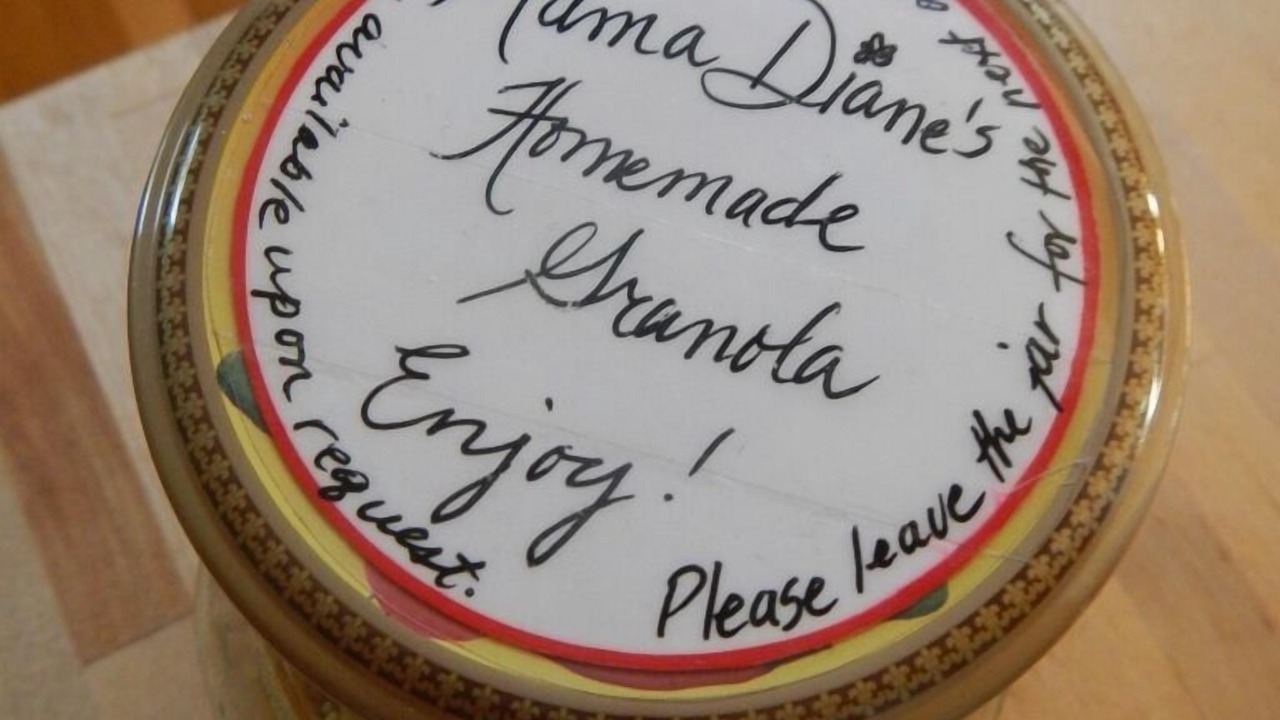 Mama Diane's
Homemade
Granola
Enjoy!
Please leave the jar for the next
available upon request.